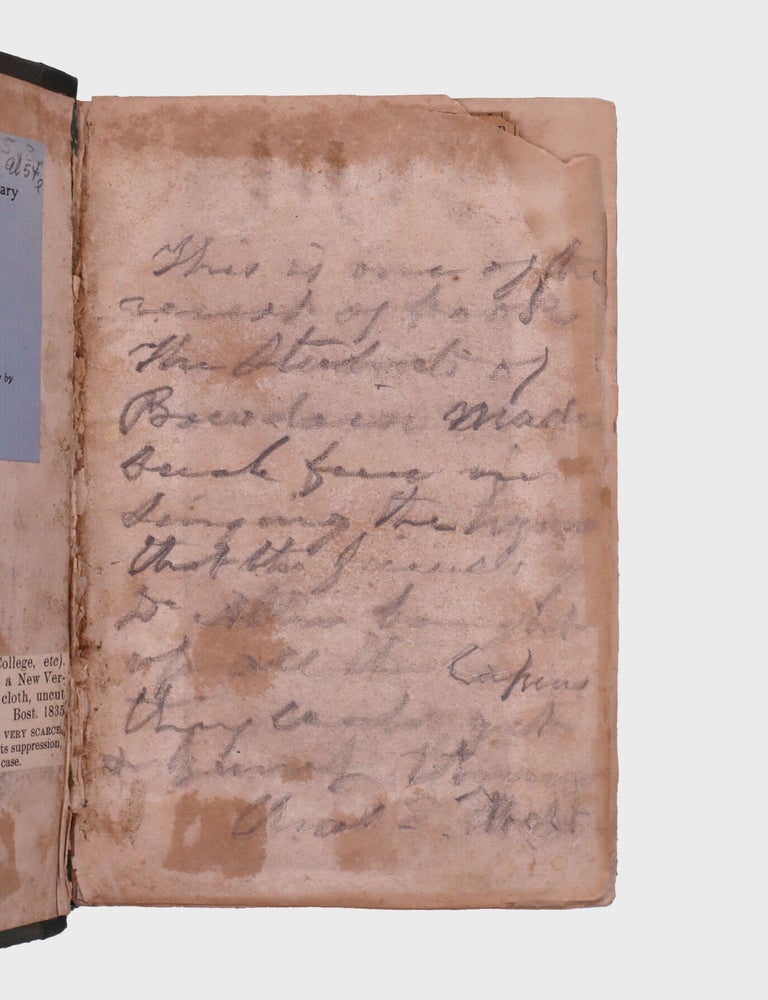 5.3
al54
ary
by
College, etc).
a New Ver-
cloth, uncut
Bost. 1835
VERY SCARCE,
ts suppression,
case.
This is one of the
rarest of book
The Students of
Bowdoin made
such fun in
singing the hymns
that the friends
Dr Allen bought
up all the Copies
they could get
& burnt them
Chas